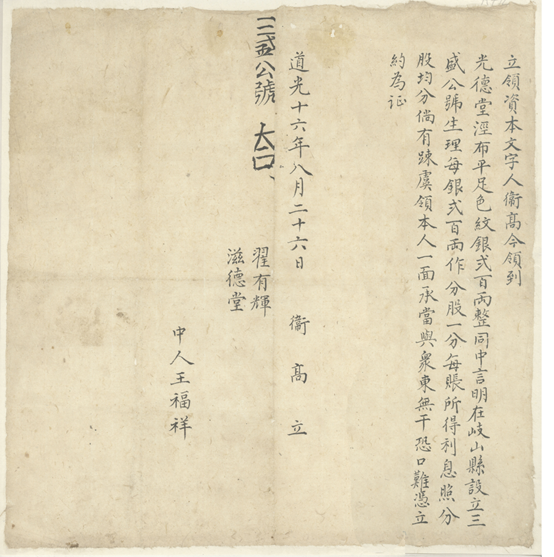 立領資本文字人衛高今領到
光德堂涇布平足色紋銀弍百兩整同中言明在岐山縣設立三
盛公號生理每銀弍百兩作分股一分每賬所得利息照分
股均分倘有踈虞領本人一面承當與衆東無干恐口難憑立
約為证
道光十六年八月二十六日 衛高立
公號
翟有輝
滋德堂
中人王福祥